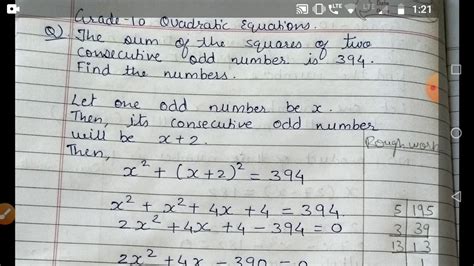 1:21
Grade-10 Quadratic Equations.
Q) The sum of the squares of two
consecutive odd number is 394.
Find the numbers.
Let one odd number be x.
Then, its consecutive odd number
will be x+2.
Then,
x² + (x+2)² = 394
x² + x² + 4x + 4 = 394
2x² + 4x + 4 - 394 = 0
2x² + 4x - 390 = 0
Rough work
5 | 195
3 | 39
13 | 13
1